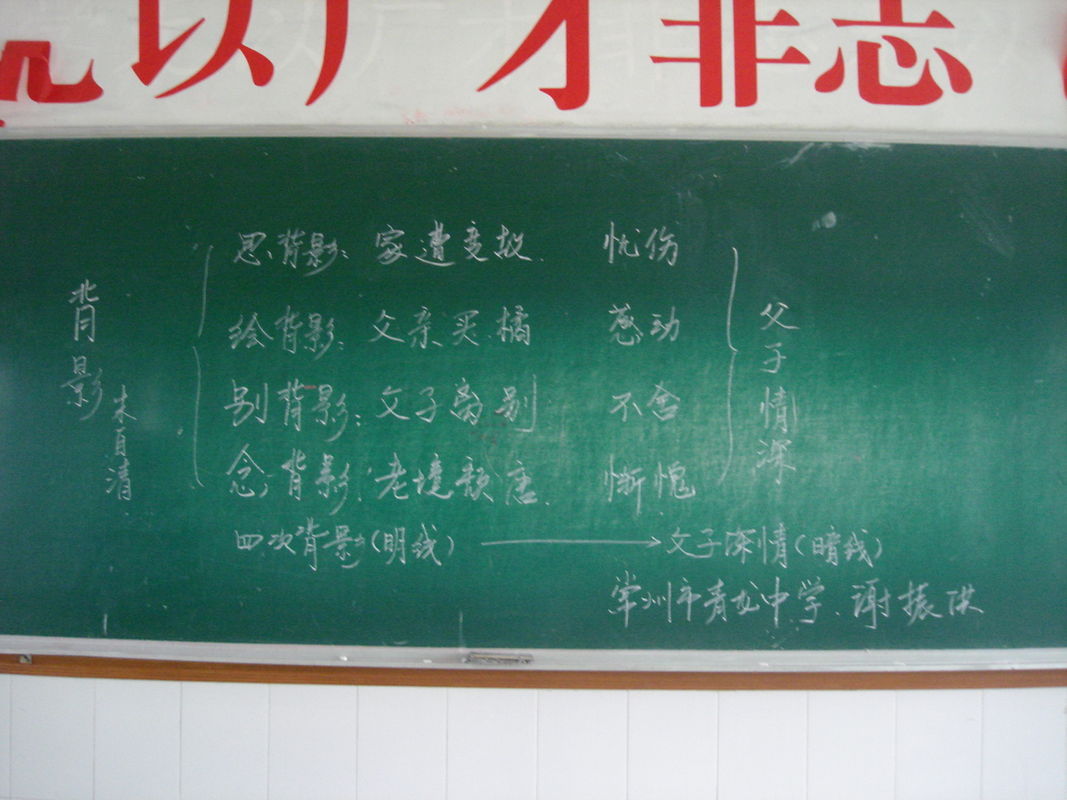 以广才非志
背影
朱自清
思背影：家遭变故 忧伤
绘背影：父亲买橘 感动
别背影：父子离别 不舍
念背影：老境颓唐 惭愧
父子情深
四次背影(明线) → 父子深情(暗线)
常州市青龙中学 谢振洪